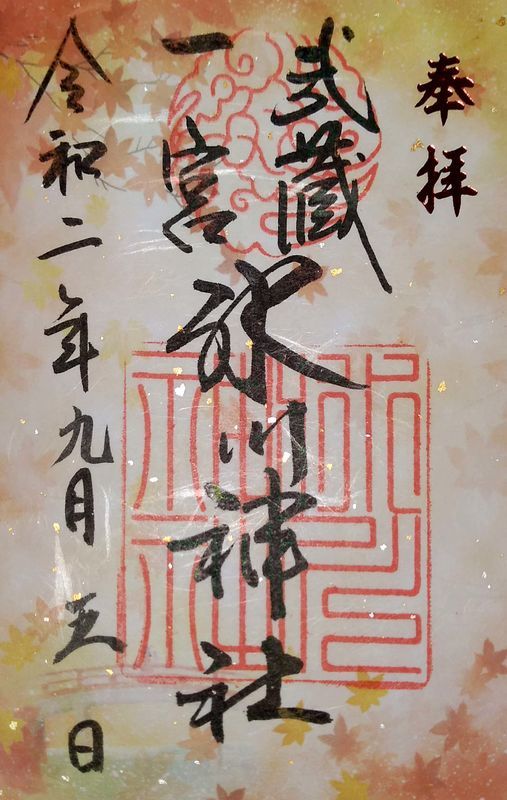 奉拝
武蔵
一宮
氷川神社
令和二年九月五日